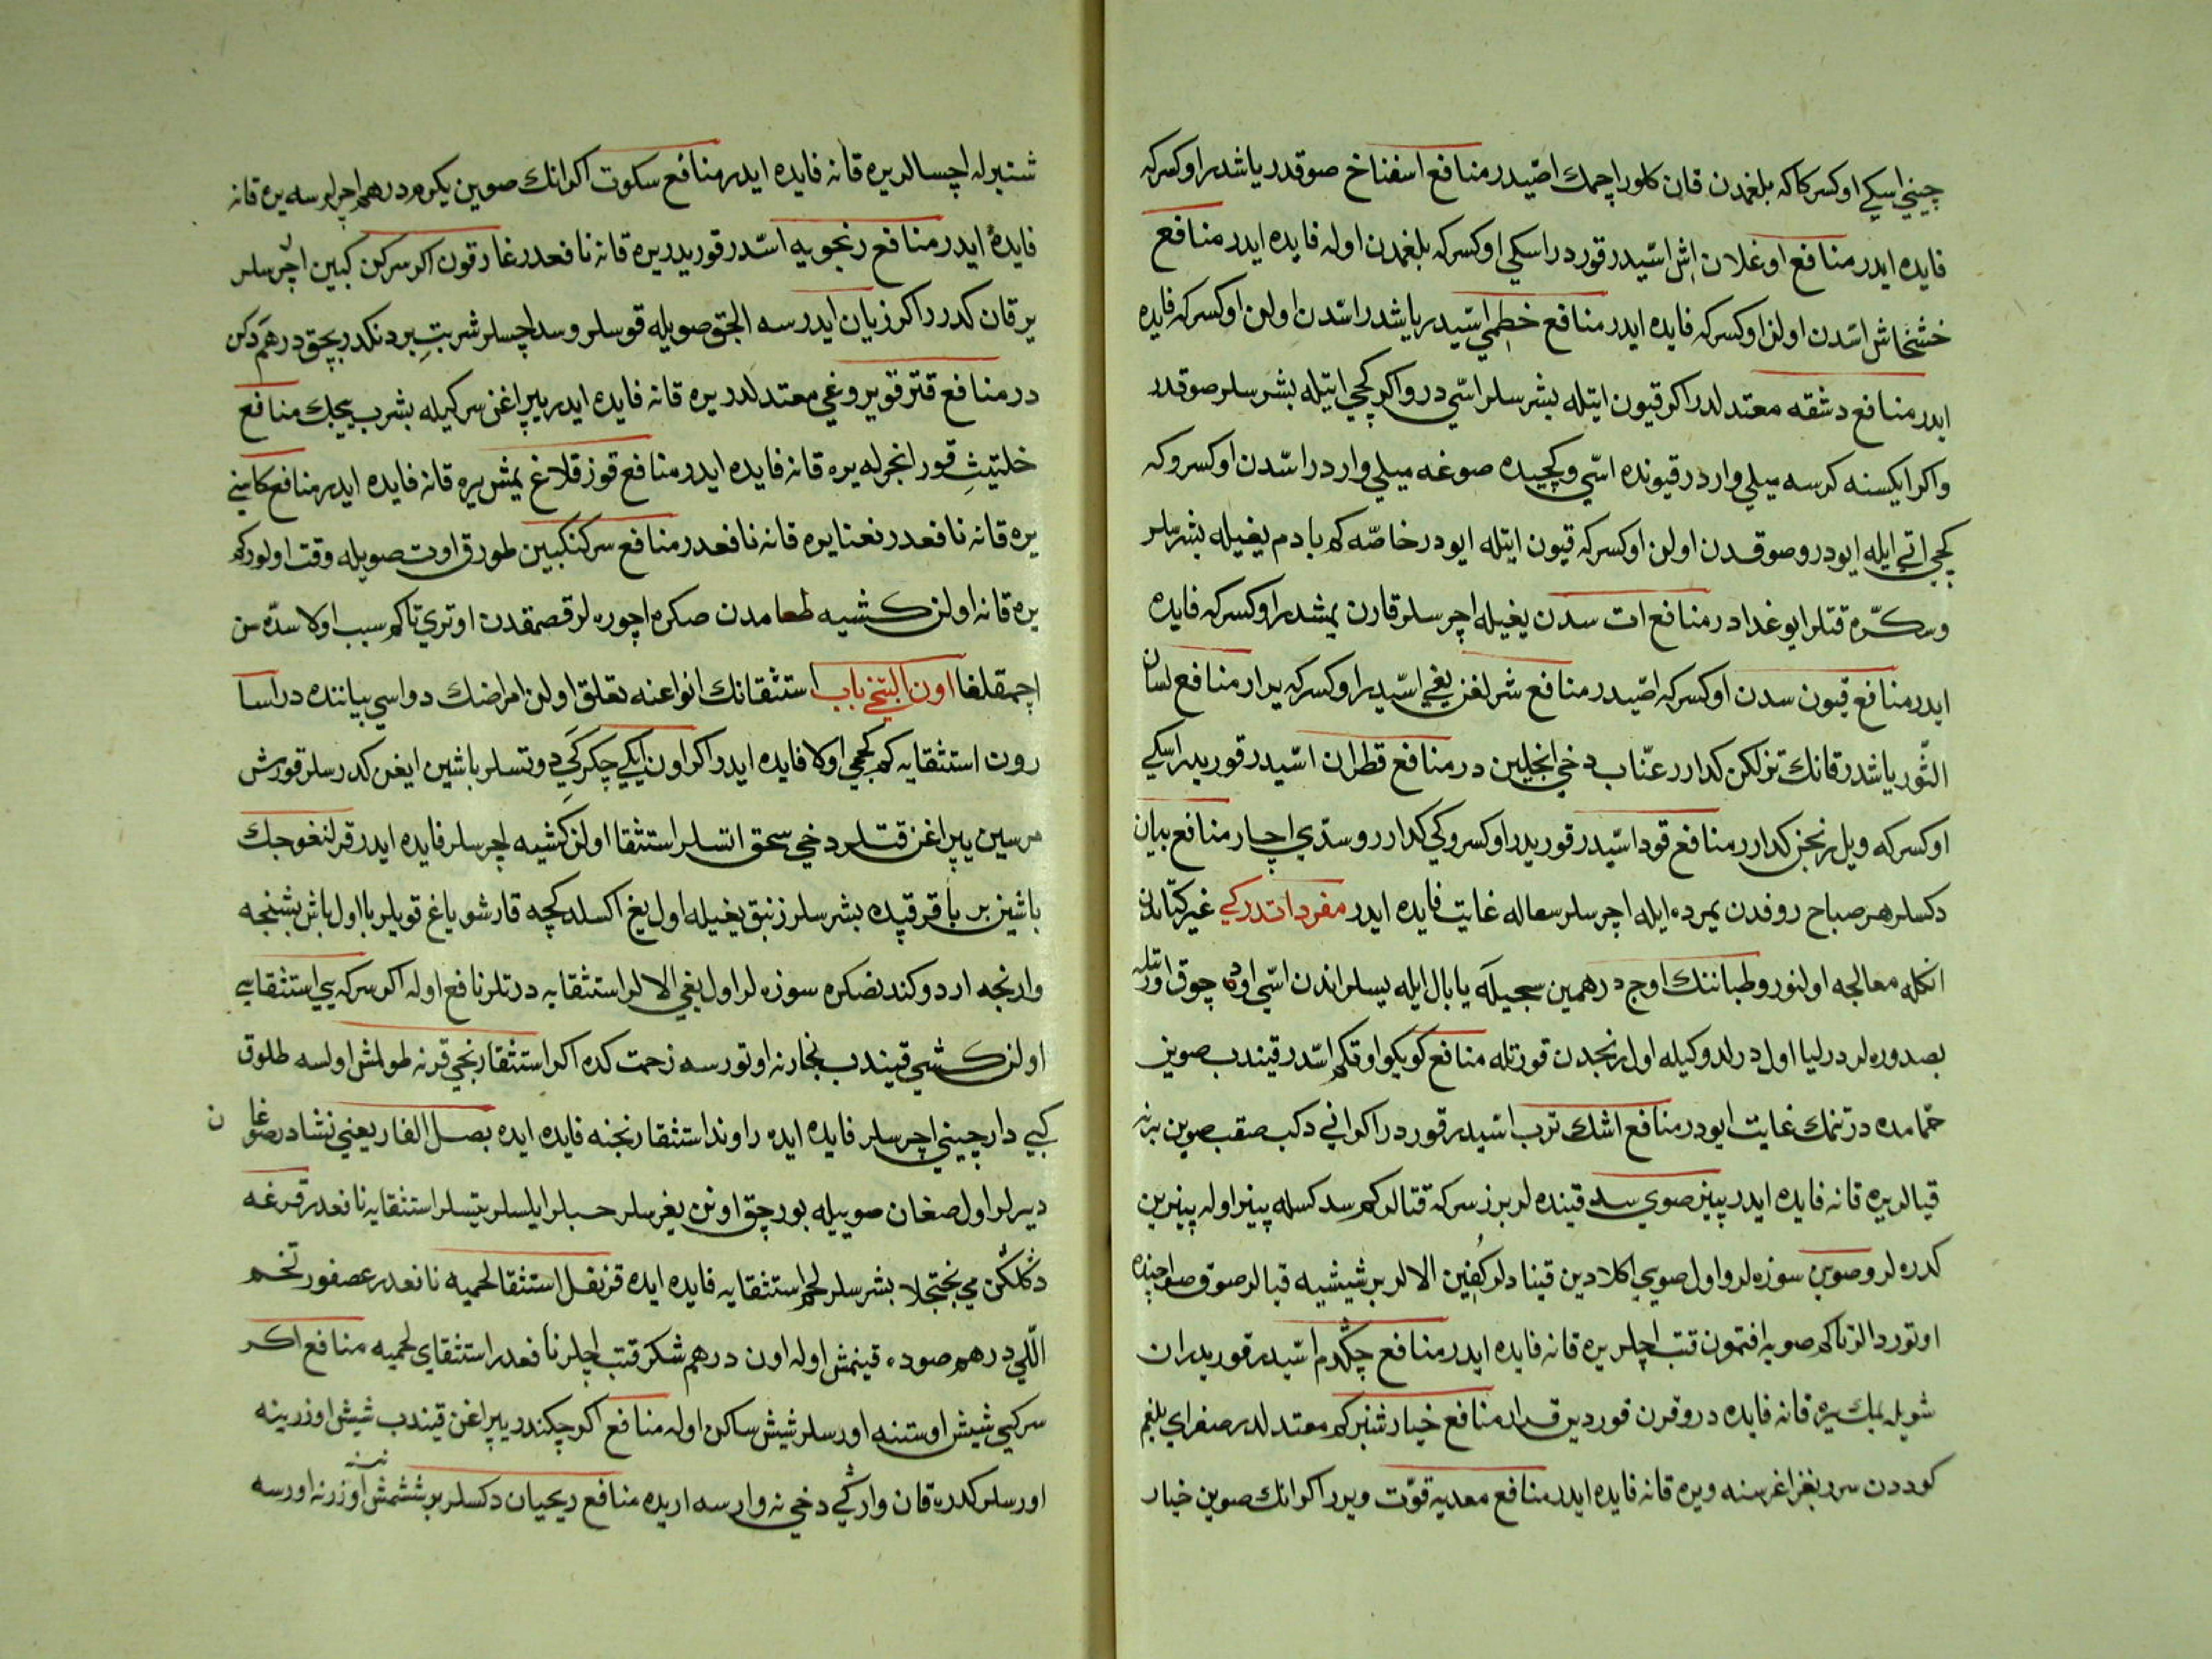 چيني اسيكي اوكسركاكه بلغمدن قان كلور اچمك اصّيدر منافع اسفناخ صوقدر ياشدر اوكسركه
فايده ايدر منافع اوغلان اشى اسّيدر قوردر اسكي اوكسركه بلغمدن اوله فايده ايدر منافع
خشخاش اسّدن اولن اوكسركه فايده ايدر منافع خطمي اسّيدر ياشدر اسّدن اولن اوكسركه فايده
ايدر منافع دشقه معتدلدر اكر قيون ايتله بشرسلر اسّي در واكر كچي ايتيله بشرسلر صوقدر
واكر ايكسنه كرسه ميلي واردر قيونده اسّي وكچيده صوغه ميلي واردر اسّدن اوكسروكه
كچي اتي ايله ايودر وصوقدن اولن اوكسركه قيون ايتله ايودر خاصّه كه بادم يغيله بشرسلر
وسكّره قتلر ايو غدادر منافع ات سدن يغيله اچرسلر قارن يمشدر اوكسركه فايده
ايدر منافع قيون سدن اوكسركه اصّيدر منافع شرلغن يغي اسّيدر اوكسركه يرار منافع لسان
الثّور ياشدر قانك تزلكن كدارر عنّاب دخي انجلين در منافع قطران اسّيدر قوريدر اسكي
اوكسركه ويل رنجن كدارر منافع قود اسّيدر قوريدر اوكسروكي كدارر وسدّي اچار منافع بيان
دكسلر هر صباح روفدن يمرده ايله اچرسلر سعاله غايت فايده ايدر مفرداتدركي غير كتابدن
انكله معالجه اولنور وطباننك اوج درهمين سجيله يا بال ايله يسلر اندن اسّي اوده چوق اورتله
بصدوره لر درليا اول درلدوكيله اول رنجدن قورتله منافع كويكو اوقكم اسّدر قيندب صوين
حمّامده درتنمك غايت ايودر منافع اشك ترب اسّيدر قوردر اكر اني دكب صقب صوين برز
قيالر يره قانه فايده ايدر پينر صوي سد قينده لر برز سركه قتالر كم سد كسله پينر اوله پينرين
كدره لر وصوين سوزه لر واول صويي اكلادين قينادلر كفين الالر بر شيشيه قيالر صوق صو اچينده
اوتوردالر تاكم صويه افتمون قتب اچلر يره قانه فايده ايدر منافع چكدم اسّيدر قوريدر ان
شويله يمك يره قانه فايده در وقرن قوردين قرار منافع خيارشنبر كم معتدلدر صفراي بلغم
كوددن سرر بغز اغرسنه ويره قانه فايده ايدر منافع معديه قوّت ويرر اكر انك صوين خيار
شنبرله اچسالر يره قانه فايده ايدر منافع سكوت اكر انك صوين يكرم درهم اچرلرسه يره قانه
فايده ايدر منافع رنجويه اسّدر قوريدر يره قانه نافعدر غارقون اكر سركن كبين اچرسلر
يرقان كدرر اكر زيان ايدرسه الجق صويله قوسلر وسد اچسلر شربت بر دنكدر بچق درهم دكن
در منافع قتر قويروغي معتدلدر يره قانه فايده ايدر يپراغن سركيله بشرب ييجك منافع
خلتيث قور انجرله يره قانه فايده ايدر منافع قوز قلاغ يمش يره قانه فايده ايدر منافع كاسني
يره قانه نافعدر نعنا يره قانه نافعدر منافع سركنكبين طورق اوت صويله وقت اولور كم
يره قانه اولن كشيه طعامدن صكره اچوره لر قصمقدن اوتري تاكم سبب اولا سدّه سن
اچمقلغا اون التنجي باب استثقانك انواعنه تعلق اولن امراضك دواسي بياننده در اسا
رون استثقايه كم كچجي اولا فايده ايدر اكر اون ايكي چكركي دوتسلر باشين ايغن كدرسلر قورش
مرسين يپراغن قتلر دخي سحق اتسلر استثقا اولن كشيه اچرسلر فايده ايدر قرلنغوجك
باشين بر باقر قپده بشرسلر زنبق يغيله اول يغ اكسلدكچه قارشو ياغ قويلر با اول باش بشنجه
وارنجه اردوكندنصكره سوزه لر اول يغي الالر استثقايه درتلر نافع اوله اكر سركه يي استثقاسي
اولن كشي قيندب بخارنه اوتورسه زحمت كده اكر استثقا رنجي قرنه طولمش اولسه طلوق
كبي دارچيني اچرسلر فايده ايده راوند استثقا رنجنه فايده ايده بصل الفار يعني نشادر صوغان
ديرلر اول صغان صوييله بورچق اونن يغرسلر حبلر ايلسلر يتسلر استثقايه نافعدر قرغه
دكلكن مي پختجلا بشرسلر لحم استثقايه فايده ايده قرنفل استثقا لحميه نافعدر عصفور تخم
اللّي درهم صوده قينمش اوله اون درهم شكر قتب اچلر نافعدر استثقاي لحميه منافع اكر
سركيي شيش اوستنه اورسلر شيش ساكن اوله منافع اكر چكندر يپراغن قيندب شيش اوزرينه
اورسلر كدره قان واركي دخي نه وارسه اريده منافع ريحيان دكسلر بر ششمش اوزرنه اورسه